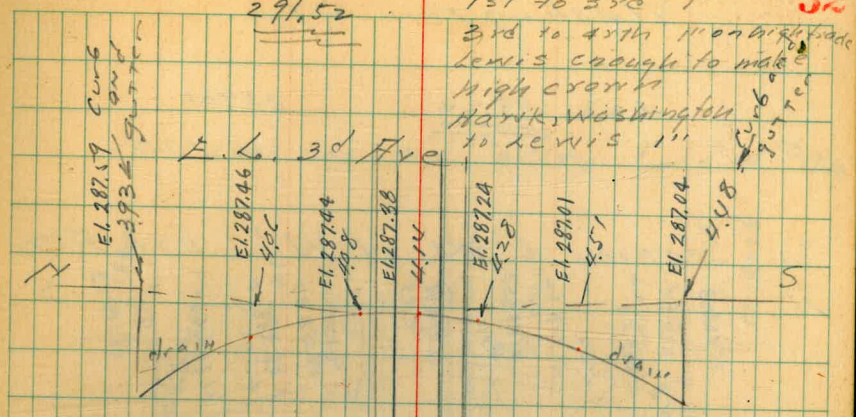 291.52
1st to 3rd 1"
32
3rd to 4th 1" on high grade
Lewis enough to make
high crown
Hawk, Washington
to Lewis 1"
E.L. 3d Ave
El. 287.59 Curb and gutter
3.93
El. 287.46
4.06
El. 287.44
4.08
El. 287.38
4.14
El. 287.24
4.28
El. 287.01
4.51
El. 287.04
4.48
Curb and gutter
N
S
drain
drain